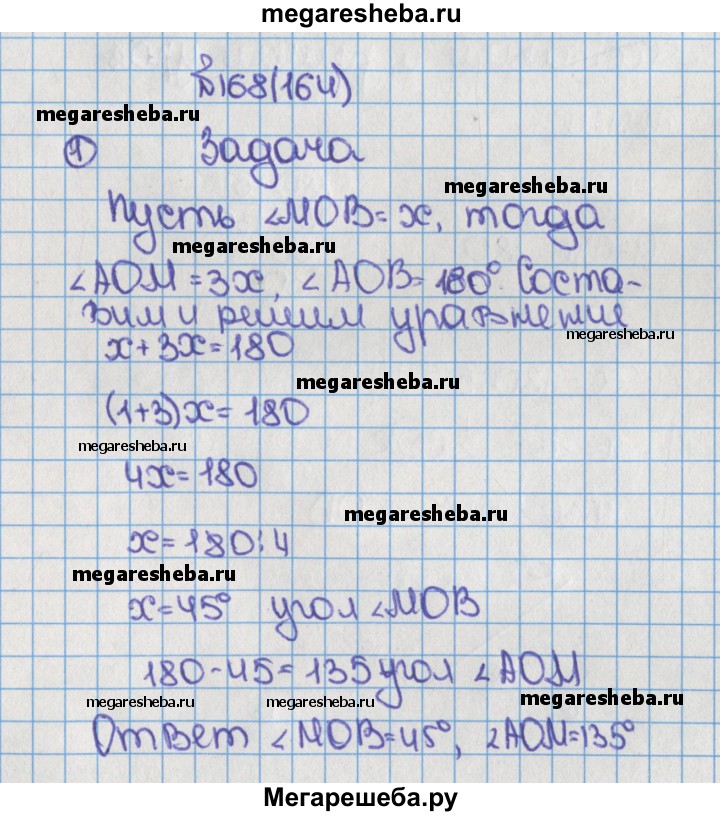 megaresheba.ru
№168(164)
megaresheba.ru
1 Задача
megaresheba.ru
Пусть ∠MOB=x, тогда
megaresheba.ru
∠AOM=3x, ∠AOB=180°. Соста-
вим и решим уравнение
megaresheba.ru
x+3x=180
megaresheba.ru
(1+3)x=180
megaresheba.ru
4x=180
megaresheba.ru
x=180:4
megaresheba.ru
x=45° угол ∠MOB
180-45=135 угол ∠AOM
megaresheba.ru megaresheba.ru megaresheba.ru
Ответ ∠MOB=45°, ∠AOM=135°
Мегарешеба.ру